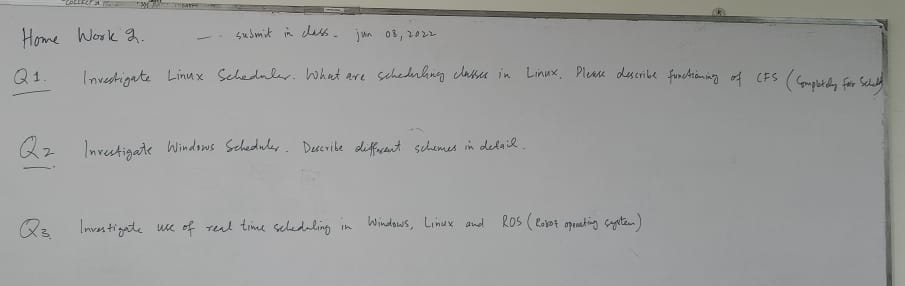 Home Work 2. — submit in class. jun 08, 2022
Q1. Investigate Linux Scheduler. What are scheduling classes in Linux. Please describe functioning of CFS (Completely Fair
Q2 Investigate Windows Scheduler. Describe different schemes in detail.
Q3. Investigate use of real time scheduling in Windows, Linux and ROS (Robot operating system)